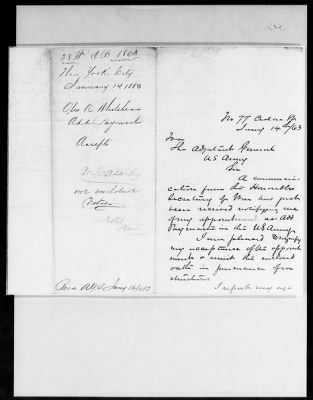 1863
New York City
January 14 1863
Add. Paymaster
Accepts
Notice
No 77 Cedar St
Jany 14th/63
The Adjutant General
US Army
Sir
A communi-
cation from the Honorable
Secretary of War has just
been received notifying me
of my appointment as Add
Paymaster in the US Army.
I am pleased to notify
my acceptance of the appoint
ment & remit the enclosed
oath in pursuance of in
structions
I report my age